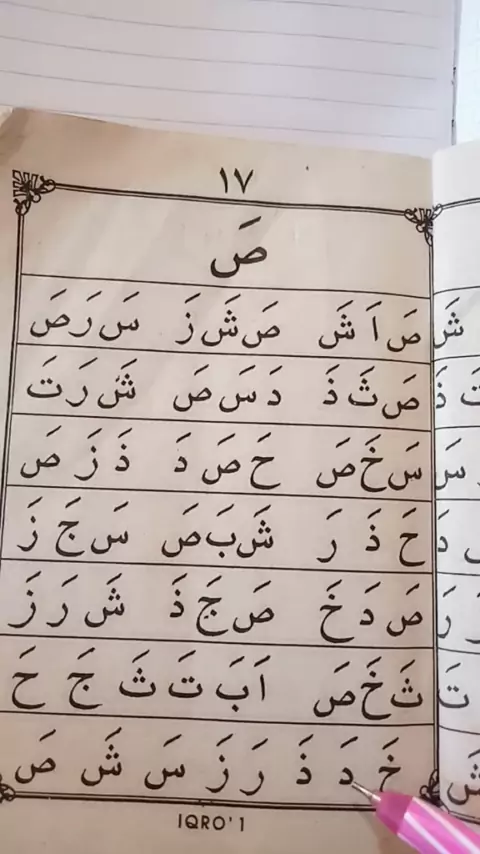 ١٧
صَ
صَ اَ شَ صَ شَ زَ سَ رَ صَ
صَ ثَ ذَ دَ سَ صَ شَ رَ تَ
سَ خَ صَ حَ صَ دَ ذَ زَ صَ
حَ ذَ رَ شَ بَ صَ سَ جَ زَ
صَ دَ خَ صَ جَ ذَ شَ رَ زَ
ثَ خَ صَ اَ بَ تَ ثَ جَ حَ
خَ دَ ذَ رَ زَ سَ شَ صَ
IQRO' 1